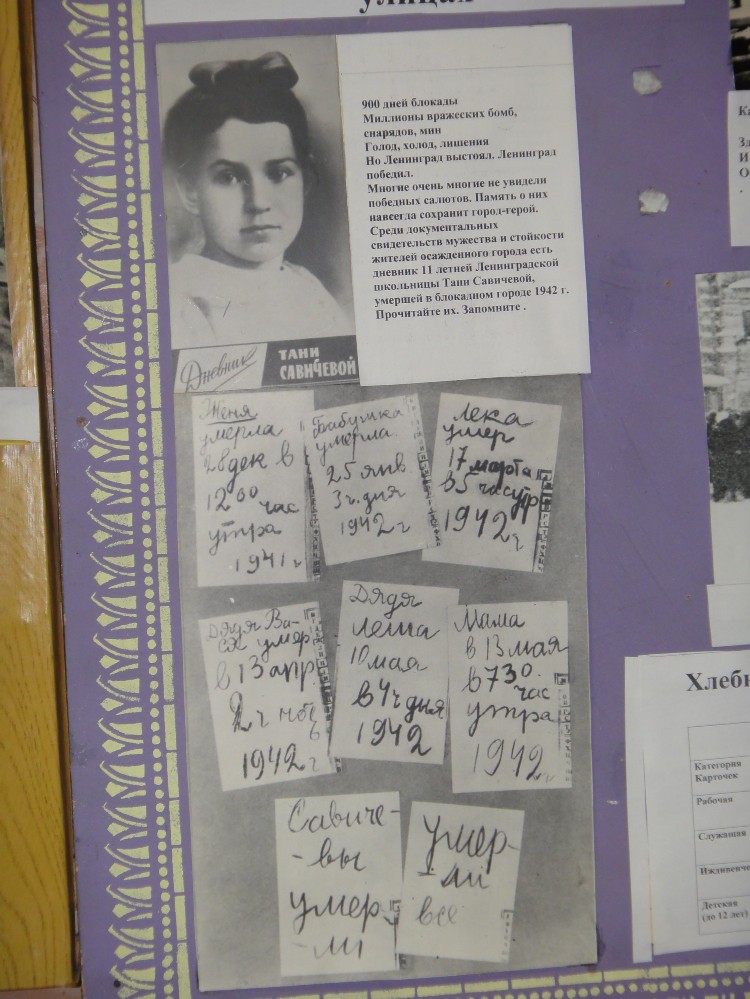 улицах
900 дней блокады
Миллионы вражеских бомб,
снарядов, мин
Голод, холод, лишения
Но Ленинград выстоял. Ленинград
победил.
Многие очень многие не увидели
победных салютов. Память о них
навсегда сохранит город-герой.
Среди документальных
свидетельств мужества и стойкости
жителей осажденного города есть
дневник 11 летней Ленинградской
школьницы Тани Савичевой,
умершей в блокадном городе 1942 г.
Прочитайте их. Запомните .
Дневник
ТАНИ
САВИЧЕВОЙ
Женя
умерла
28 дек в
12 00 час
утра
1941 г
Бабушка
умерла
25 янв.
3 ч. дня
1942 г
Лека
умер
17 марта
в 5 час утр
1942 г
Дядя Ва-
ся умер
в 13 апр
2 ч ночь
1942 г
Дядя
Леша
10 мая
в 4 ч дня
1942
Мама
в 13 мая
в 7 30
час
утра
1942 г
Савиче-
-вы
умер-
-ли
умер-
-ли
все
Хлебн
Категории
Карточек
Рабочая
Служащая
Иждивенче
Детская
(до 12 лет)